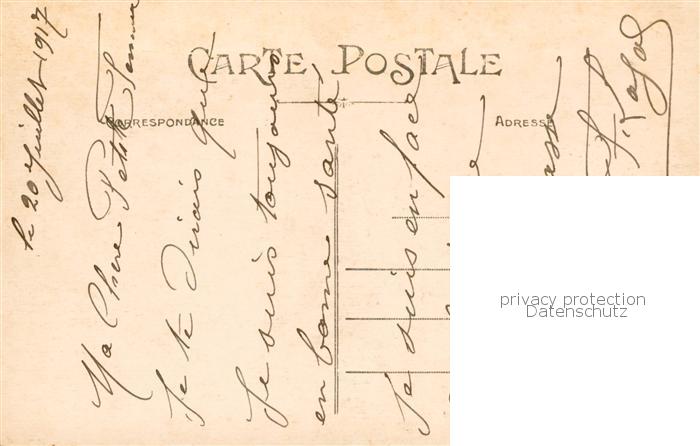 CARTE POSTALE
CORRESPONDANCE
ADRESSE
le 20 juillet 1917
Ma Chere Petite Femme
Je te Dirais que
Je suis toujours
en bonne santé
Je suis en face
privacy protection
Datenschutz